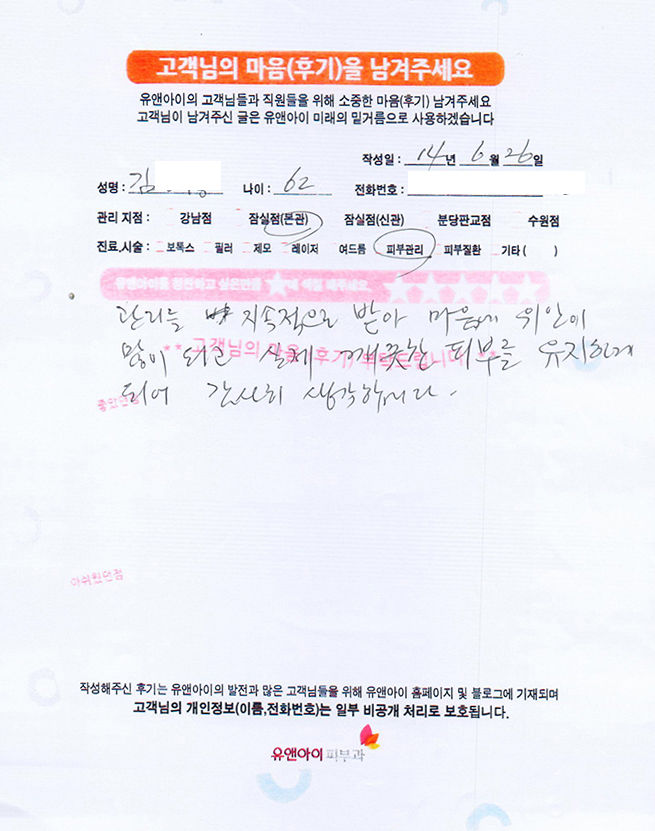 고객님의 마음(후기)을 남겨주세요
유앤아이의 고객님들과 직원들을 위해 소중한 마음(후기) 남겨주세요
고객님이 남겨주신 글은 유앤아이 미래의 밑거름으로 사용하겠습니다
작성일 : 14년 6월 26일
성명 : 김 나이 : 62 전화번호 :
관리 지점 : 강남점 잠실점(본관) 잠실점(신관) 분당판교점 수원점
진료,시술 : 보톡스 필러 제모 레이저 여드름 피부관리 피부질환 기타 ( )
유앤아이를 칭찬하고 싶은만큼 ★에 색칠 해주세요. ★★★★★
관리를 지속적으로 받아 마음에 위안이
많이 되고 실제 깨끗한 피부를 유지하게
** 고객님의 마음(후기) 부탁드립니다 **
되어 감사히 생각합니다.
좋았던점
아쉬웠던점
작성해주신 후기는 유앤아이의 발전과 많은 고객님들을 위해 유앤아이 홈페이지 및 블로그에 기재되며
고객님의 개인정보(이름,전화번호)는 일부 비공개 처리로 보호됩니다.
유앤아이피부과